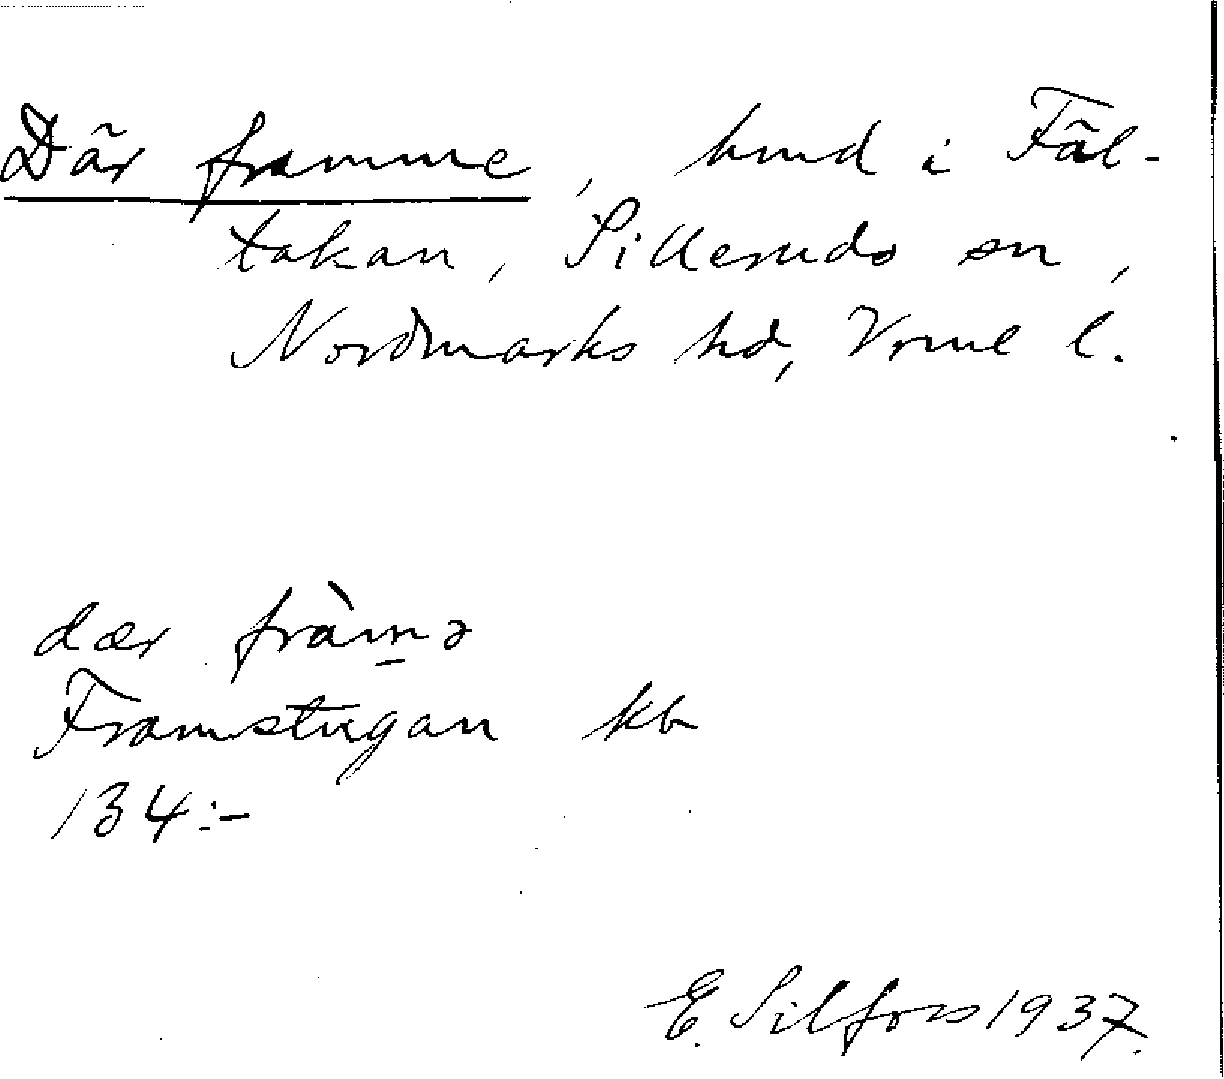 Där framme, hmd i Fäl-
takan, Silleruds sn,
Nordmarks hd, Vrml l.
dær fràm̠ə
Framstugan kb
134:-
E. Silfors 1937.